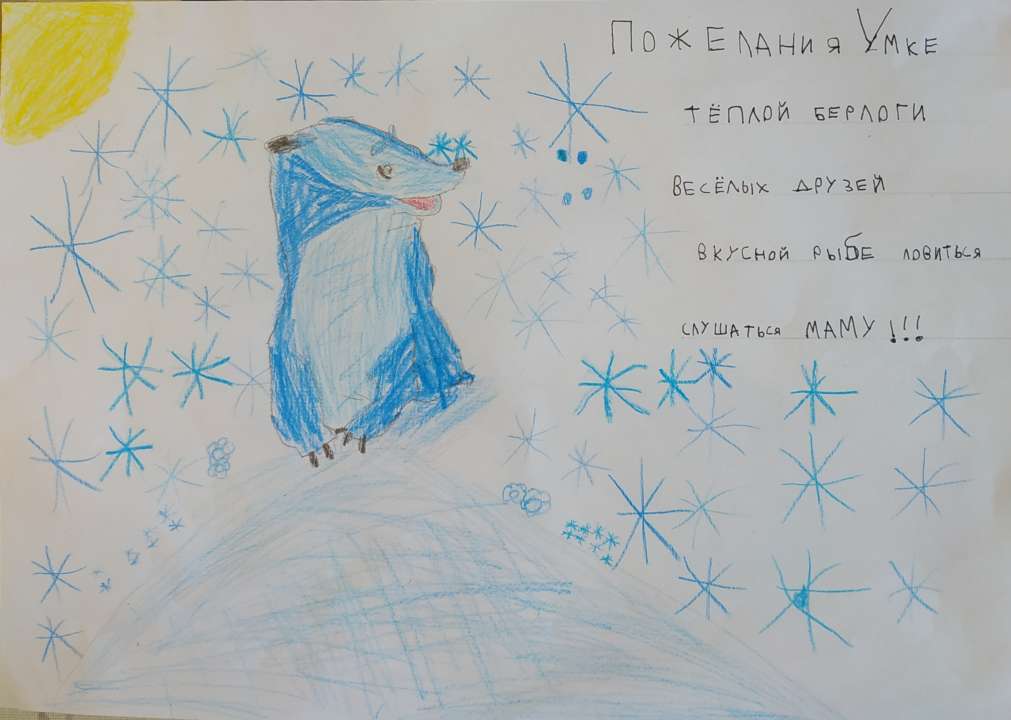 Пожелания Умке
тёплой берлоги
весёлых друзей
вкусной рыбе ловиться
слушаться маму!!!